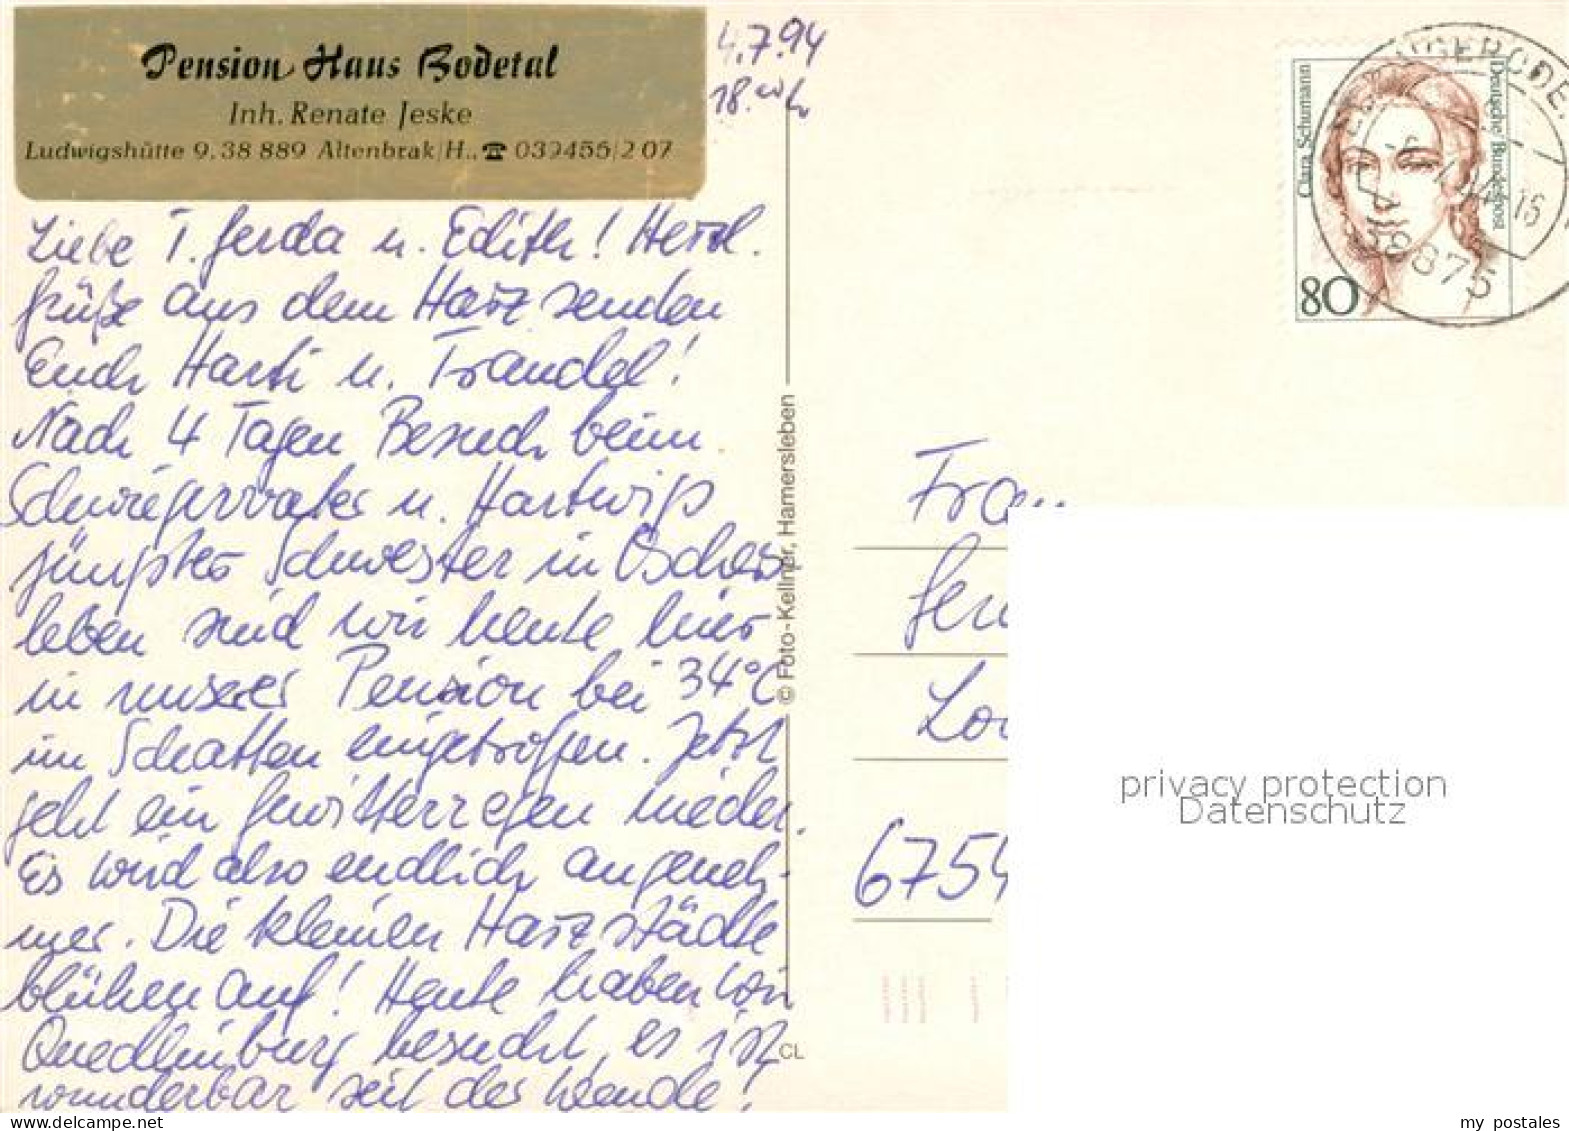 Pension Haus Bodetal
Inh. Renate Jeske
Ludwigshütte 9, 38 889 Altenbrak/H., ☎ 039456/2 07
4.7.94
18.00 h
Liebe T. Gerda u. Edith! Herzl.
Grüße aus dem Harz senden
Euch Harti u. Traudel!
Nach 4 Tagen Besuch beim
Schwiegervater u. Hartwigs
jüngster Schwester in Oschers
leben sind wir heute hier
in unserer Pension bei 34°C
im Schatten eingetroffen. Jetzt
geht ein Gewitterregen nieder.
Es wird also endlich angeneh-
mer. Die kleinen Harzstädte
blühen auf! Heute haben wir
Quedlinburg besucht, es ist
wunderbar seit der Wende!
© Foto-Kellner, Hamersleben
CL
Clara Schumann
Deutsche Bundespost
80
GERODE
16
38875
Frau
Ger
Lo
6754
privacy protection
Datenschutz
my postales